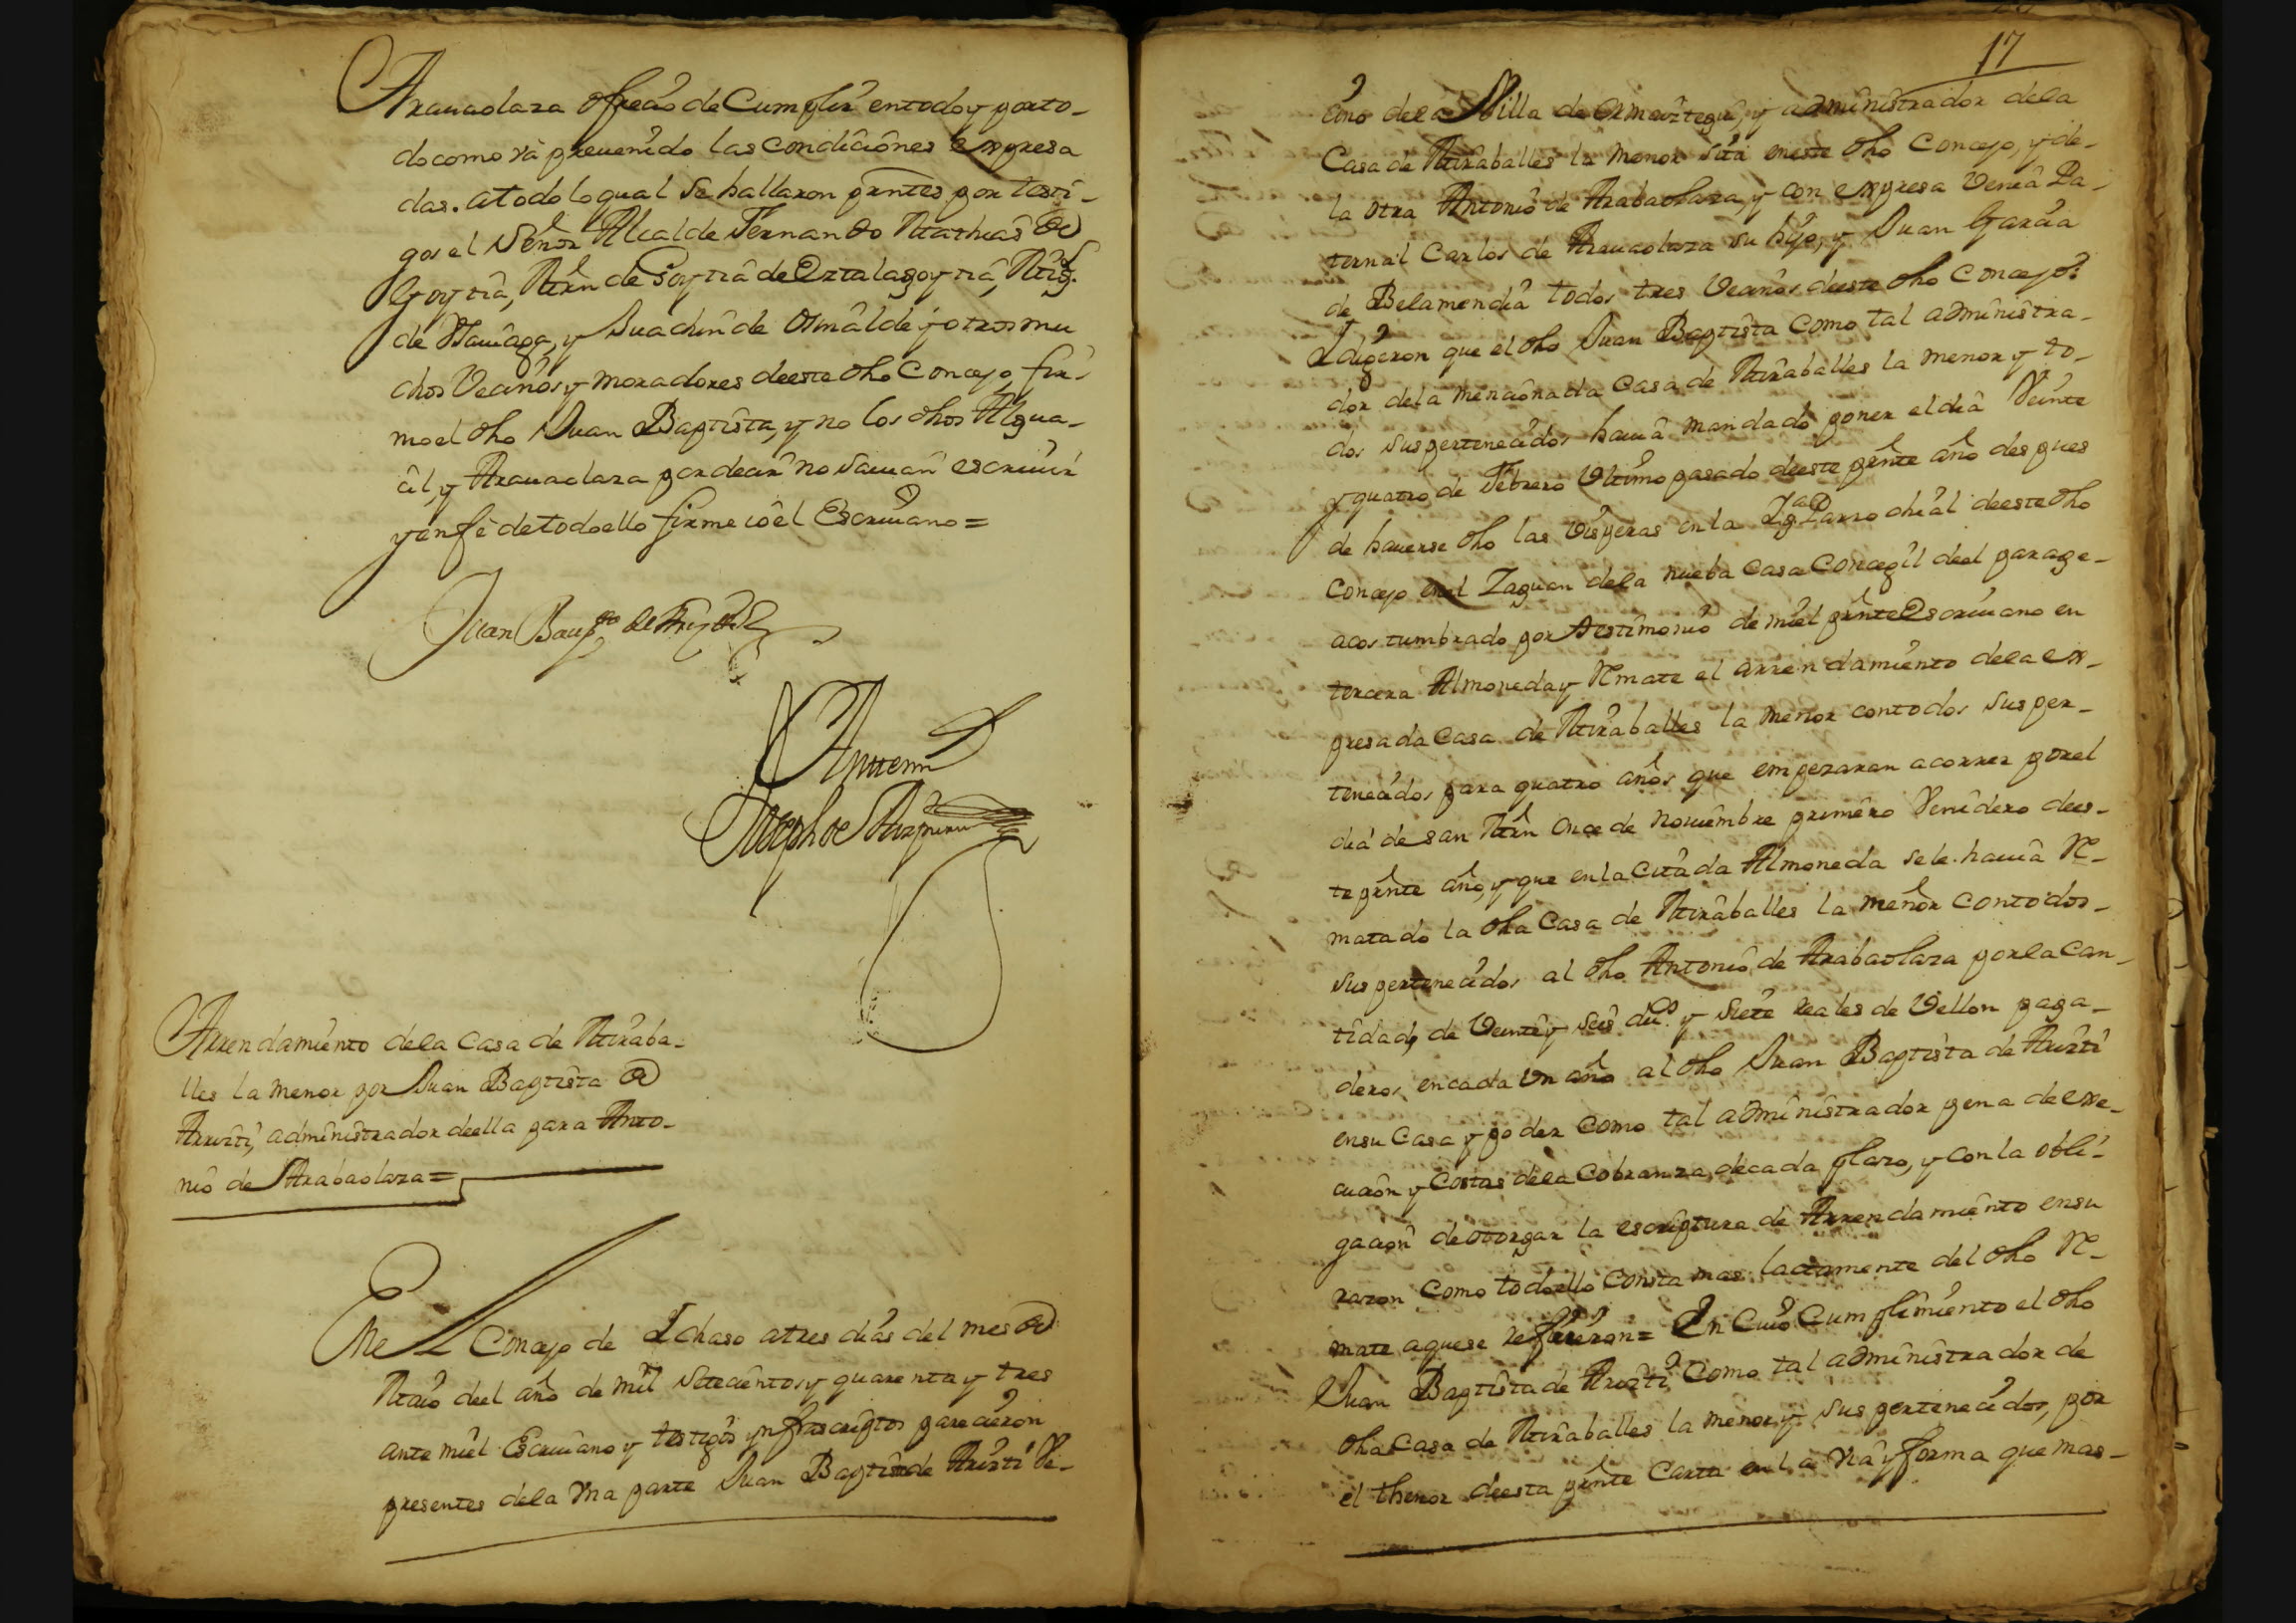 Arauaolaza ofrecio de Cumplir entodo y porto-
do como vá preuenido las condiciones expresa
das. atodo lo qual se hallaron pntes por testi-
gos el Señor Alcalde Fernando Mathias de
Goytia, Mrn de Goytia de Oztalagoytia, Mig.l
de y Juachin de Osinalde y otros mu
chos Vecinos y moradores deeste dho Concejo fir-
mo el dho Juan Baptista, y no los dhos Algua-
cil, y Arauaolaza por decir no sauian escriuir
y en fé de todo ello firme io el Escriuano =
Juan Bap.ta de
Antemi
Joseph de
Arrendamiento dela Casa de Miraba-
lles la menor por Juan Baptista de
Aruiti, administrador deella para Anto-
nio de Arabaolaza =
Enel Concejo de Ichaso atres dias del mes de
Maio deel año de mil setecientos y quarenta y tres
ante mi el Escriuano y testigos ynfrascriptos parecieron
presentes dela vna parte Juan Baptista de Ve-
17
cino dela Villa de Ormaiztegui, y administrador dela
Casa de Miraballes la menor sita eneste dho Concejo, y de-
la otra Antonio de Arabaolaza, y con expresa Venia Pa-
ternal Carlos de Arauaolaza su hijo, y Juan Garcia
de Belamendia todos tres Vecinos deeste dho Concejo
I digeron que el dho Juan Baptista como tal administra-
dor dela mencionada Casa de Miraballes la menor y to-
dos sus pertenecidos hauia mandado poner el dia Veinte
y quatro de Febrero Vltimo pasado deeste pnte año despues
de hauerse dho las Visperas en la Ig.a Parrochial deeste dho
Concejo enel Zaguan dela nueba Casa Concegil deel parage-
acostumbrado por testimonio de mi el pnte Escriuano en
tercera Almoneda y Remate el arrendamiento dela ex-
presada Casa de Miraballes la menor contodos sus per-
tenecidos para quatro años que empezaran acorrer por el
dia de san Mrn once de Nouiembre primero Venidero dees-
te pnte año, y que en la Citada Almoneda se le hauia Re-
matado la dha Casa de Miraballes la menor contodos-
sus pertenecidos al dho Antonio de Arabaolaza por la Can-
tidad de Veinte y seis du.os y siete reales de Vellon paga-
deros encada vn año al dho Juan Baptista de
ensu Casa y poder como tal administrador pena de exe-
cucion y Costas dela Cobranza decada plazo, y con la obli-
gacion de otorgar la escriptura de Arrendamiento ensu
razon como todo ello consta mas lactamente del dho Re-
mate aquese refirieron = En Cuio Cumplimiento el dho
Juan Baptista de como tal administrador de
dha Casa de Miraballes la menor y sus pertenecidos, por
el thenor deesta pnte Carta en la via y forma que mas-